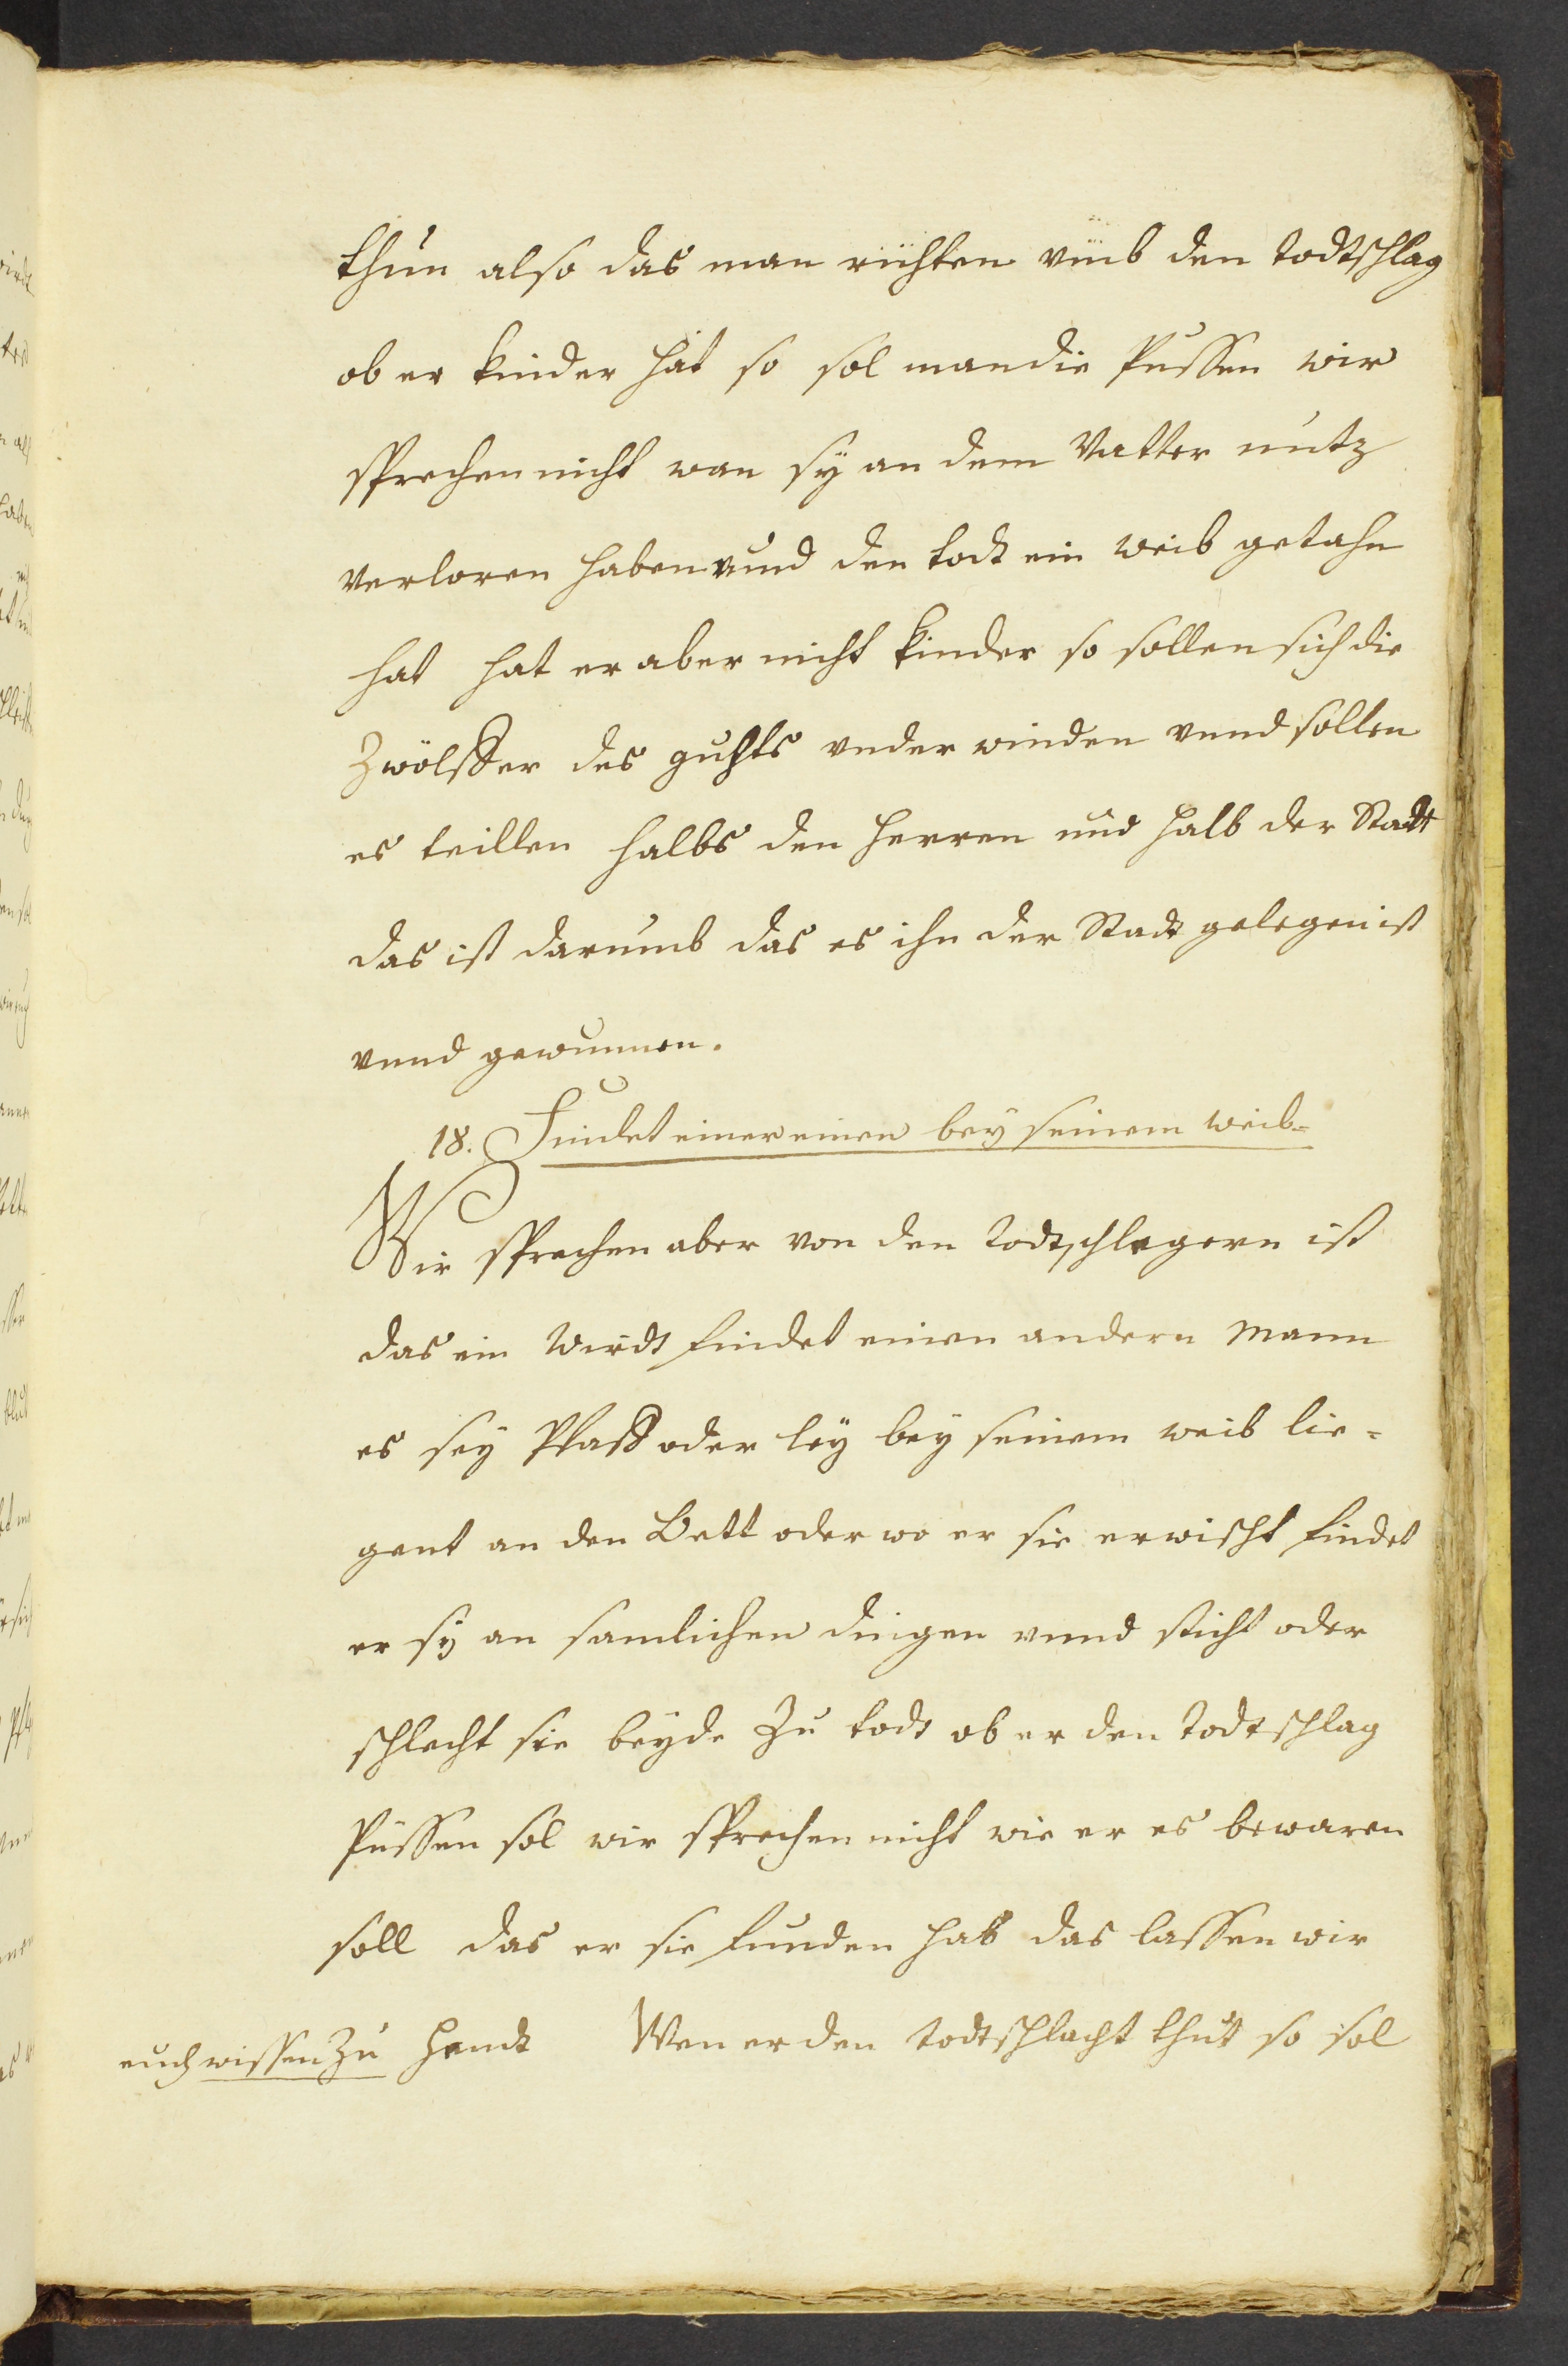 thun also das man richten vmb den todtschlag
ob er kinder hat so sol man die Pussen wir
sprechen nicht wan sÿ an dem Vatter nutz
verloren haben vnnd den todt ein weib getahn
hat hat er aber nicht kinder so sollen sich die
Zwölffer des guhts vnder winden vnnd sollen
es teillen halbs den Herren und halb der Stadt
das ist darumb das es ihn der Stadt gelegen ist
vnnd gewunnen.
18. Findet einer einen bey seinem weib=
Wir sprechen aber von den todtschlegern ist
das ein Wirdt findet einen andern Mann
es sey Pfaff oder leÿ beÿ seinem weib lie=
gent an den Bett oder wo er sie erwischt findet
er sÿ an samlichen dingen vnnd sticht oder
schlecht sie beÿde Zu todt ob er den todtschlag
Püssen sol wir sprechen nicht wie er es bewaren
soll das er sie funden hab das lassen wir
euch wissen Zu handt Wen er den todtschlacht thut so sol